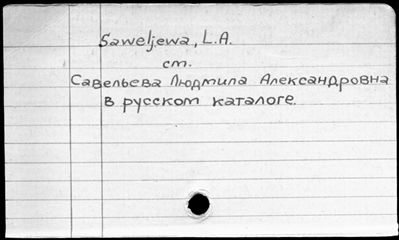 Saweljewa, L.A.
см.
Савельева Людмила Александровна
в русском каталоге.